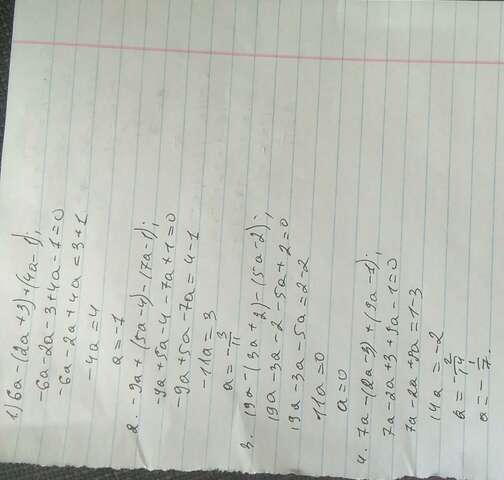 1) 6a-(2a+3)+(4a-1);
-6a-2a-3+4a-1=0
-6a-2a+4a=3+1
-4a=4
a=-1
2. -9a+(5a-4)-(7a-1);
-9a+5a-4-7a+1=0
-9a+5a-7a=4-1
-11a=3
a=-3/11
3. 19a-(3a+2)-(5a-2);
19a-3a-2-5a+2=0
19a-3a-5a=2-2
11a=0
a=0
4. 7a-(2a-3)+(9a-1);
7a-2a+3+9a-1=0
7a-2a+9a=1-3
14a=-2
a=-2/14
a=-1/7.